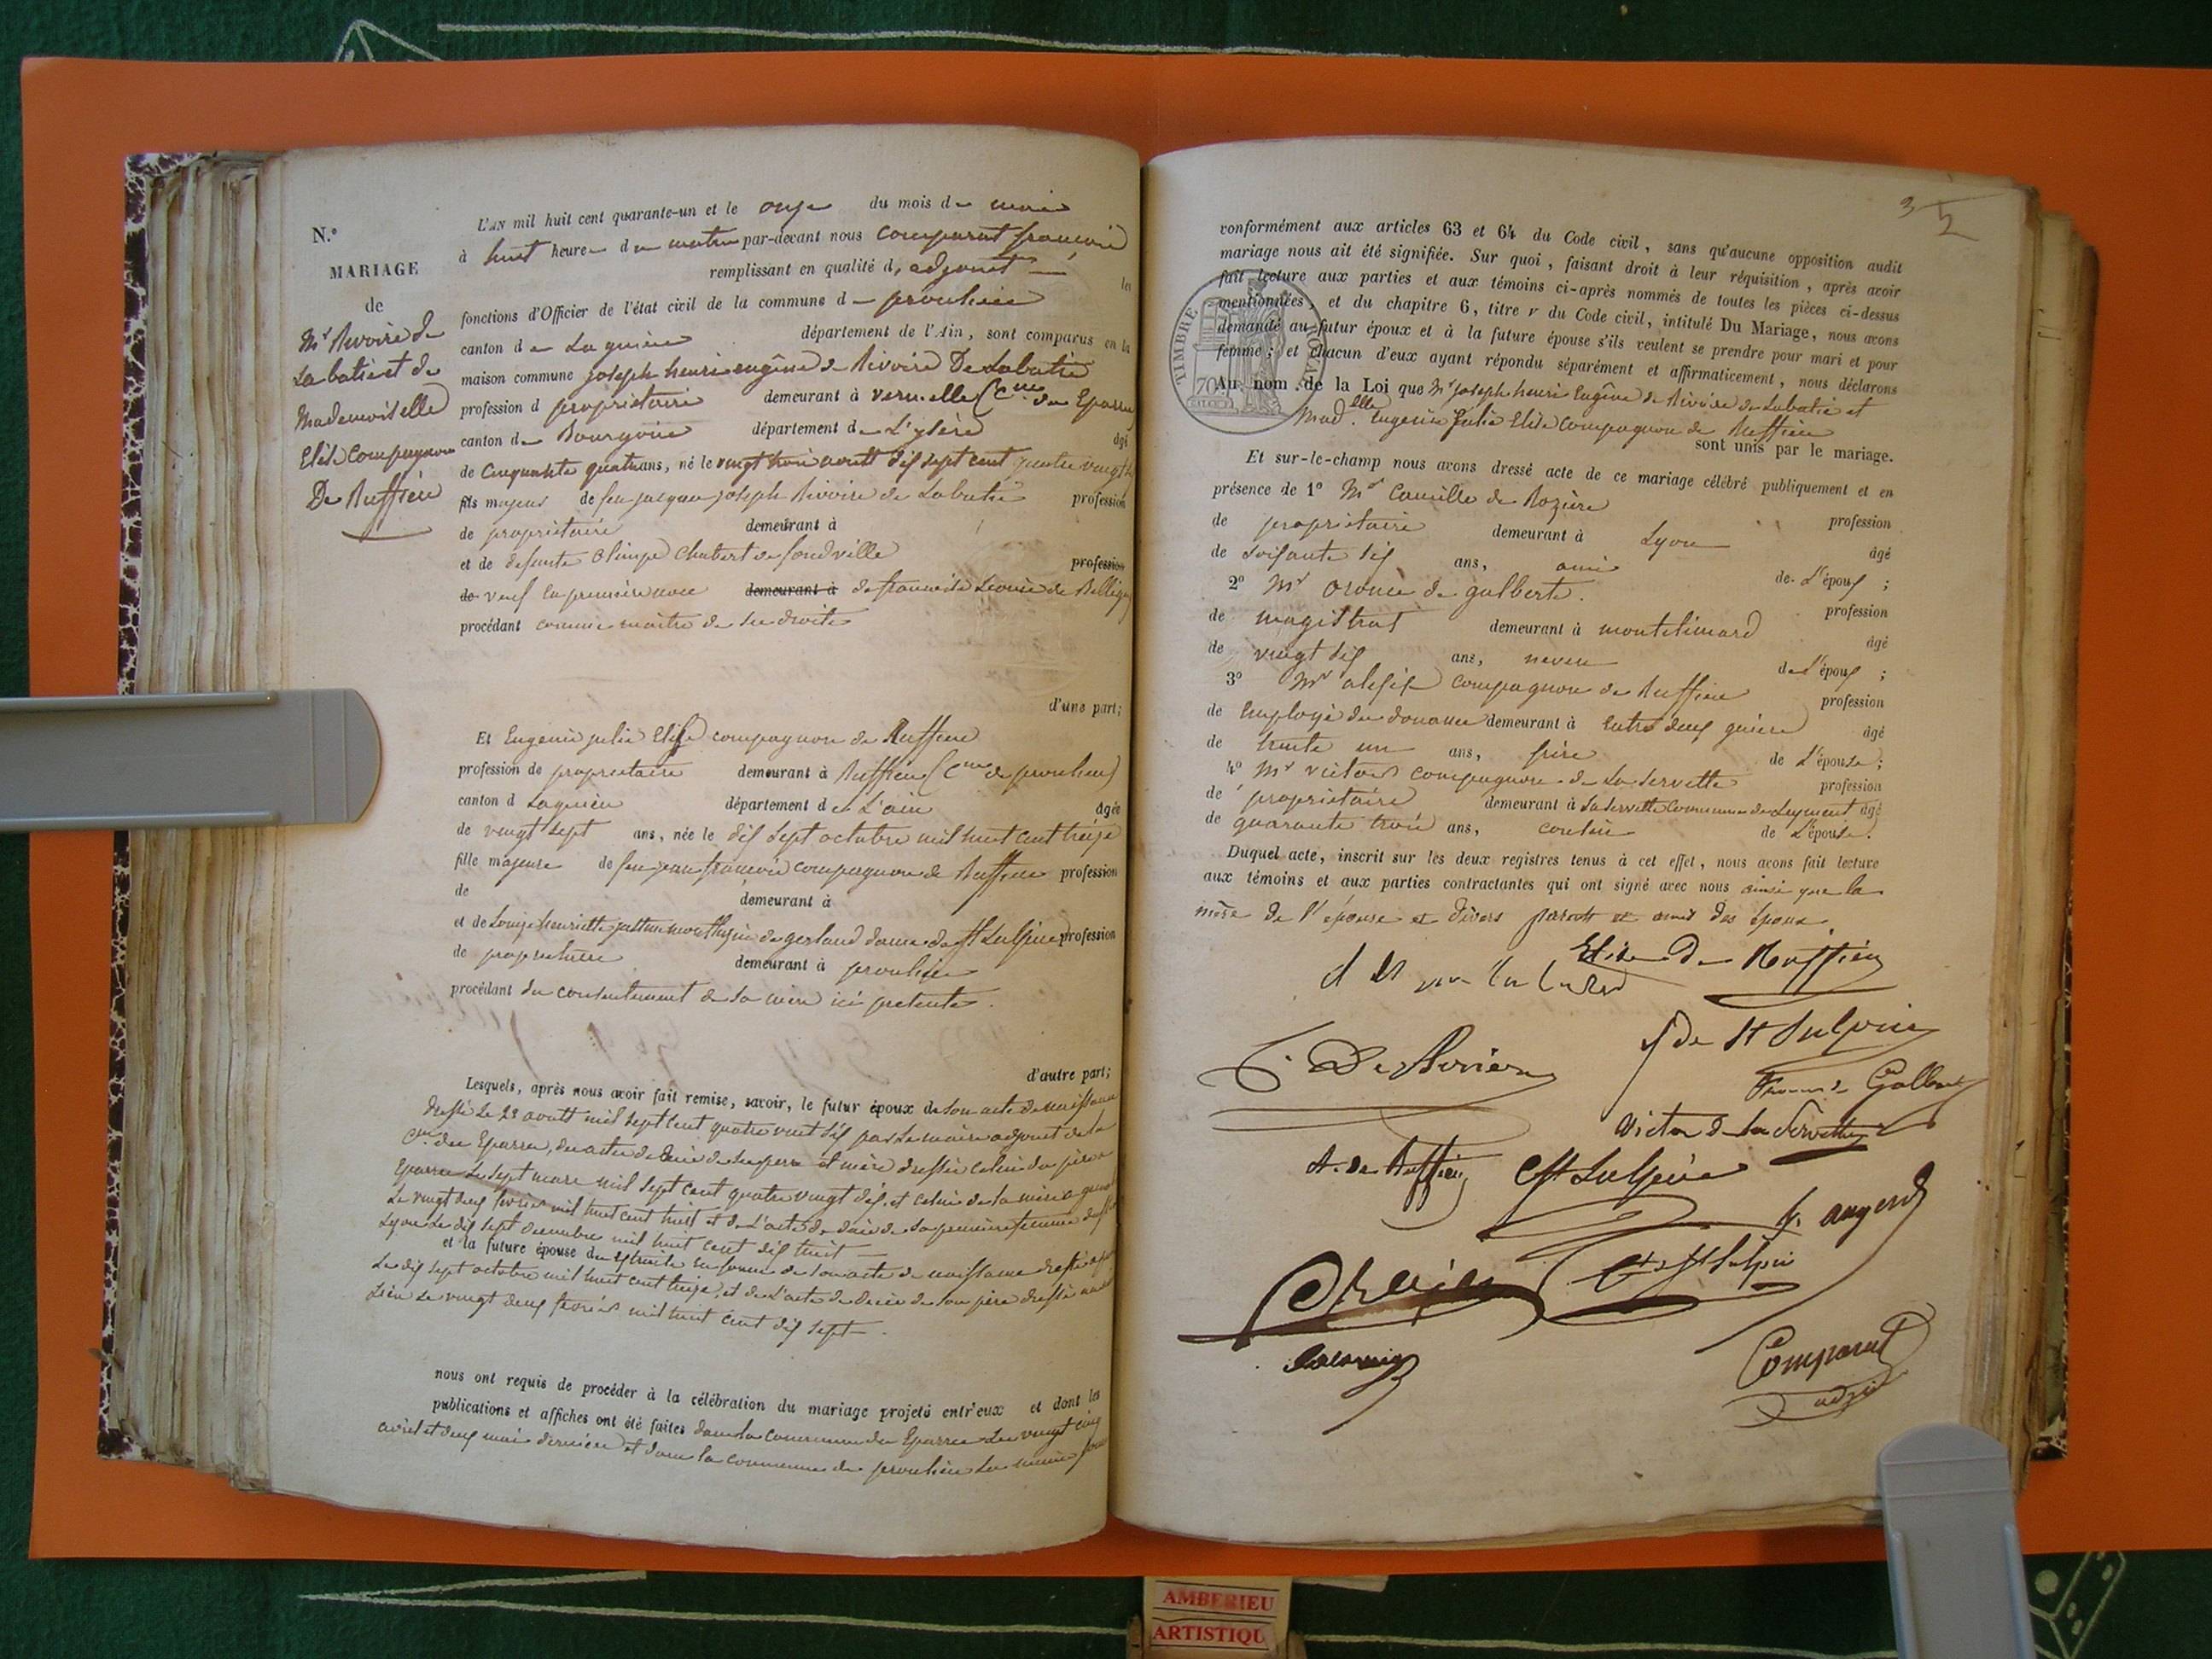 N.º
MARIAGE
de
Mr Rivoire de
Labatie et de
Mademoiselle
Elise Compagnon
De Ruffieu
L'AN mil huit cent quarante-un et le onze du mois de mai
à huit heures du matin par-devant nous Comparat françois
remplissant en qualité d'adjoint les
fonctions d'Officier de l'état civil de la commune de proulieu
canton de Lagnieu département de l'Ain, sont comparus en la
maison commune joseph henri eugêne de Rivoire De Labatie
profession d propriétaire demeurant à vermelle (Cne des Eparres
canton de Bourgoin département de L'ysère âgé
de Cinquante quatre ans, né le vingt trois aoutt dix sept cent quatre vingt six
fils majeur de feu jacques joseph Rivoire de Labatie profession
de propriétaire demeurant à
et de defunte Olimpe Chabert de fondville profession
de veuf en premiere noce demeurant à de francoise Leonie de Belligny
procédant comme maitre de ses droits
d'une part;
Et Eugenie julie Elise compagnon de Ruffieu
profession de propriétaire demeurant à Ruffieu (Cne de proulieu)
canton d Lagnieu département de L'ain âgée
de vingt sept ans, née le dix sept octobre mil huit cent treize
fille majeure de feu jean françois compagnon de Ruffieu profession
de demeurant à
et de Louise henriette de gerland dame de St Sulpice profession
de propriétaire demeurant à proulieu
procédant du consentement de sa mère ici présente.
d'autre part;
Lesquels, après nous avoir fait remise, savoir, le futur époux de son acte de naissance
dressé le 23 aoutt mil sept cent quatre vingt six par le maire adjoint de la
Cne des Eparres, des actes de décès de ses pere et mère dressés celui du père a
Eparres le sept mars mil sept cent quatre vingt dix, et celui de la mère a
Le vingt deux fevrier mil huit cent huit et de L'acte de décès de sa première femme dressé
Lyon le dix sept decembre mil huit cent dix huit —
et la future épouse d'un extrait en forme de son acte de naissance dressé
Le dix sept octobre mil huit cent treize, et de L'acte de décès de son père dressé
Lieu le vingt deux fevrier mil huit cent dix sept —.
nous ont requis de procéder à la célébration du mariage projeté entr'eux et dont les
publications et affiches ont été faites dans la commune des Eparres les vingt cinq
avril et deux mai derniers et dans la commune de proulieu les mêmes jours
35
conformément aux articles 63 et 64 du Code civil, sans qu'aucune opposition audit
mariage nous ait été signifiée. Sur quoi, faisant droit à leur réquisition, après avoir
fait lecture aux parties et aux témoins ci-après nommés de toutes les pièces ci-dessus
mentionnées, et du chapitre 6, titre V du Code civil, intitulé Du Mariage, nous avons
demandé au futur époux et à la future épouse s'ils veulent se prendre pour mari et pour
femme; et chacun d'eux ayant répondu séparément et affirmaticement, nous déclarons
Au nom de la Loi que Mr joseph henri Eugêne de Rivoire de Labatie et
Madelle Eugenie Julie Elise compagnon de Ruffieu
sont unis par le mariage.
TIMBRE ROYAL
70
Et sur-le-champ nous avons dressé acte de ce mariage célébré publiquement et en
présence de 1º Mr Camille de Rozière profession
de propriétaire demeurant à Lyon âgé
de soixante dix ans, ami de L'époux;
2º Mr oronce de galbert. profession
de magistrat demeurant à montelimard âgé
de vingt six ans, neveu de L'époux;
3º Mr alexis compagnon de Ruffieu profession
de Employé des douanes demeurant à entre deux guiers âgé
de trente un ans, frère de L'épouse;
4º Mr victor compagnon de La Servette profession
de propriétaire demeurant à La Servette commune de Leyment âgé
de quarante trois ans, cousin de L'épouse.
Duquel acte, inscrit sur les deux registres tenus à cet effet, nous avons fait lecture
aux témoins et aux parties contractantes qui ont signé avec nous ainsi que la
mère de l'épouse et divers parents et amis des époux.
Elise De Ruffieu
de St Sulpice
Galbert
Victor de La Servette
A. de Ruffieu
St Sulpice
angerd
St Sulpice
Comparat
adj
AMBERIEU
ARTISTIQU